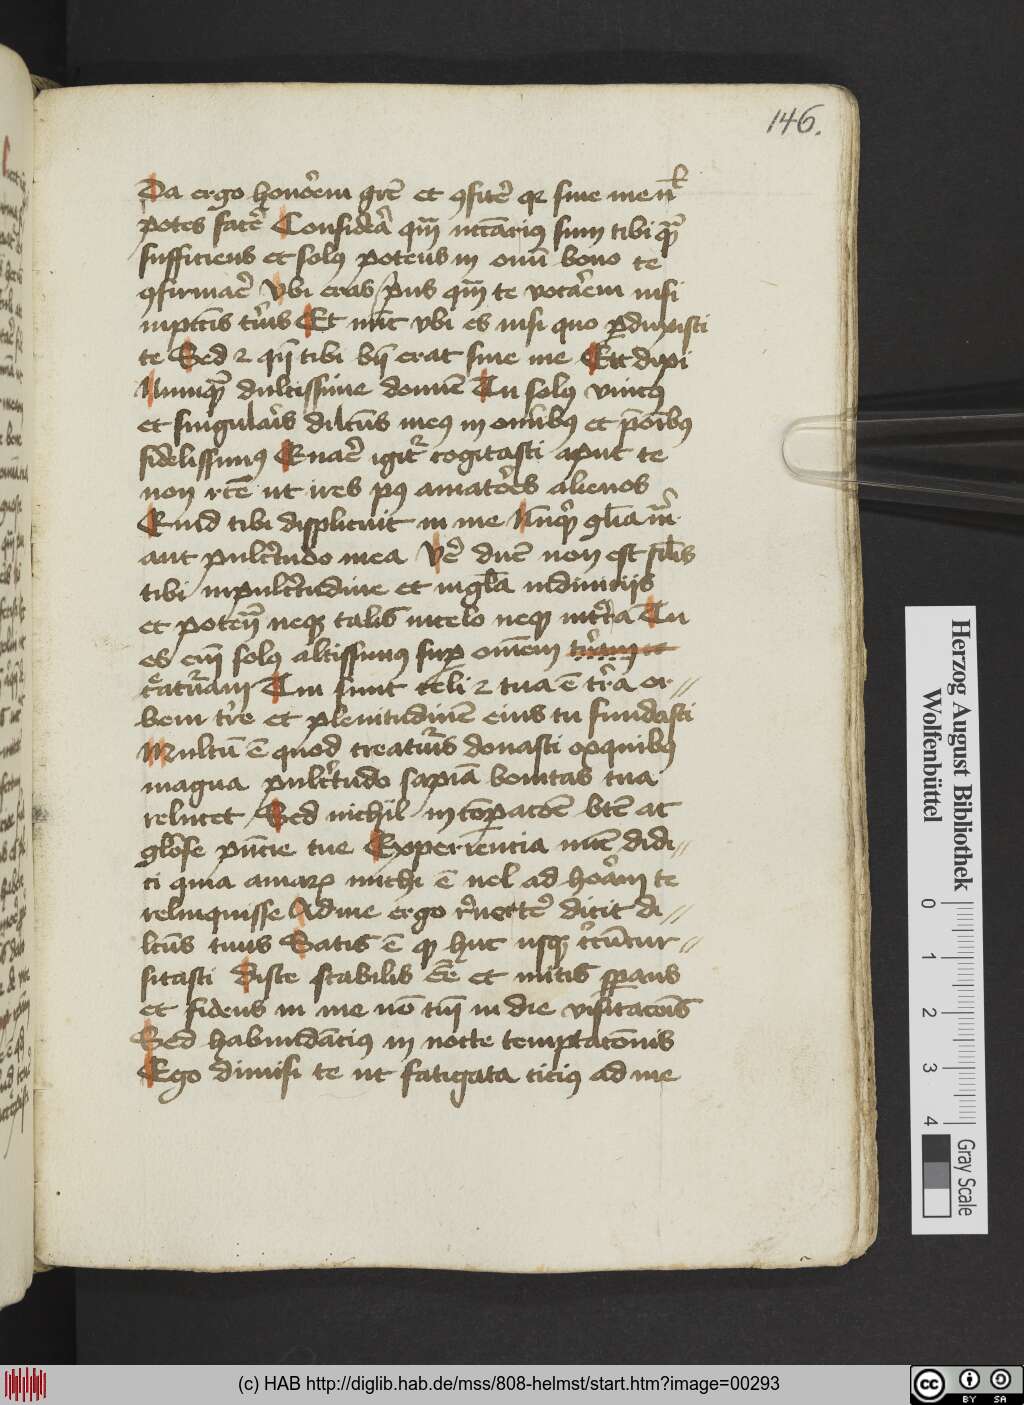 146.
Da ergo honorem gre et qfiter qr sine me nl
potes facer Considera qm nccarius sum tibi qr
sufficiens et solus potens in omi bono te
qfirmare Vbi eras prius qm te vocarem nisi
in pctis tuis Et nuc vbi es nisi quo perduxisti
te Sed qn tibi bn erat sine me Et dixi
Nunqr dulcissime domine Tu solus vnicus
et singularis dilcus meus in omibus et pre oibus
fidelissimus Quare igitr cogitasti aput te
non rcem ut ires pus amatores alienos
Quid tibi displicuit in me Nunqr glia mr
aut pulcritudo mea Ve dne non est silis
tibi in pulcritudine et in gla in diuicijs
et poten neqz talis in celo neqz in terra Tu
es em solus altissimus sup omem turam et
creaturam Tui sunt celi tua e terra or
bem terre et plenitudinem eius tu fundasti
Multum e quod creaturis donasti ex quibus
magna pulcritudo sapia bonitas tua
relucet Sed nichil in compacoe bte ac
glose pncie tue Experiencia nuc didi
ci quia amar michi e uel ad horam te
reliquisse Ad me ergo reuerter dicit di
lcus tuus Satis e qz huc usqz circucur
sitasti Disce stabilis ee et mitis sperans
et fidens in me no tm in die visitacois
Sed habundacius in nocte temptaconis
Ego dimisi te ut fatigata cicius ad me
Herzog August Bibliothek
Wolfenbüttel
0 1 2 3 4
Gray Scale
(c) HAB http://diglib.hab.de/mss/808-helmst/start.htm?image=00293
cc BY SA